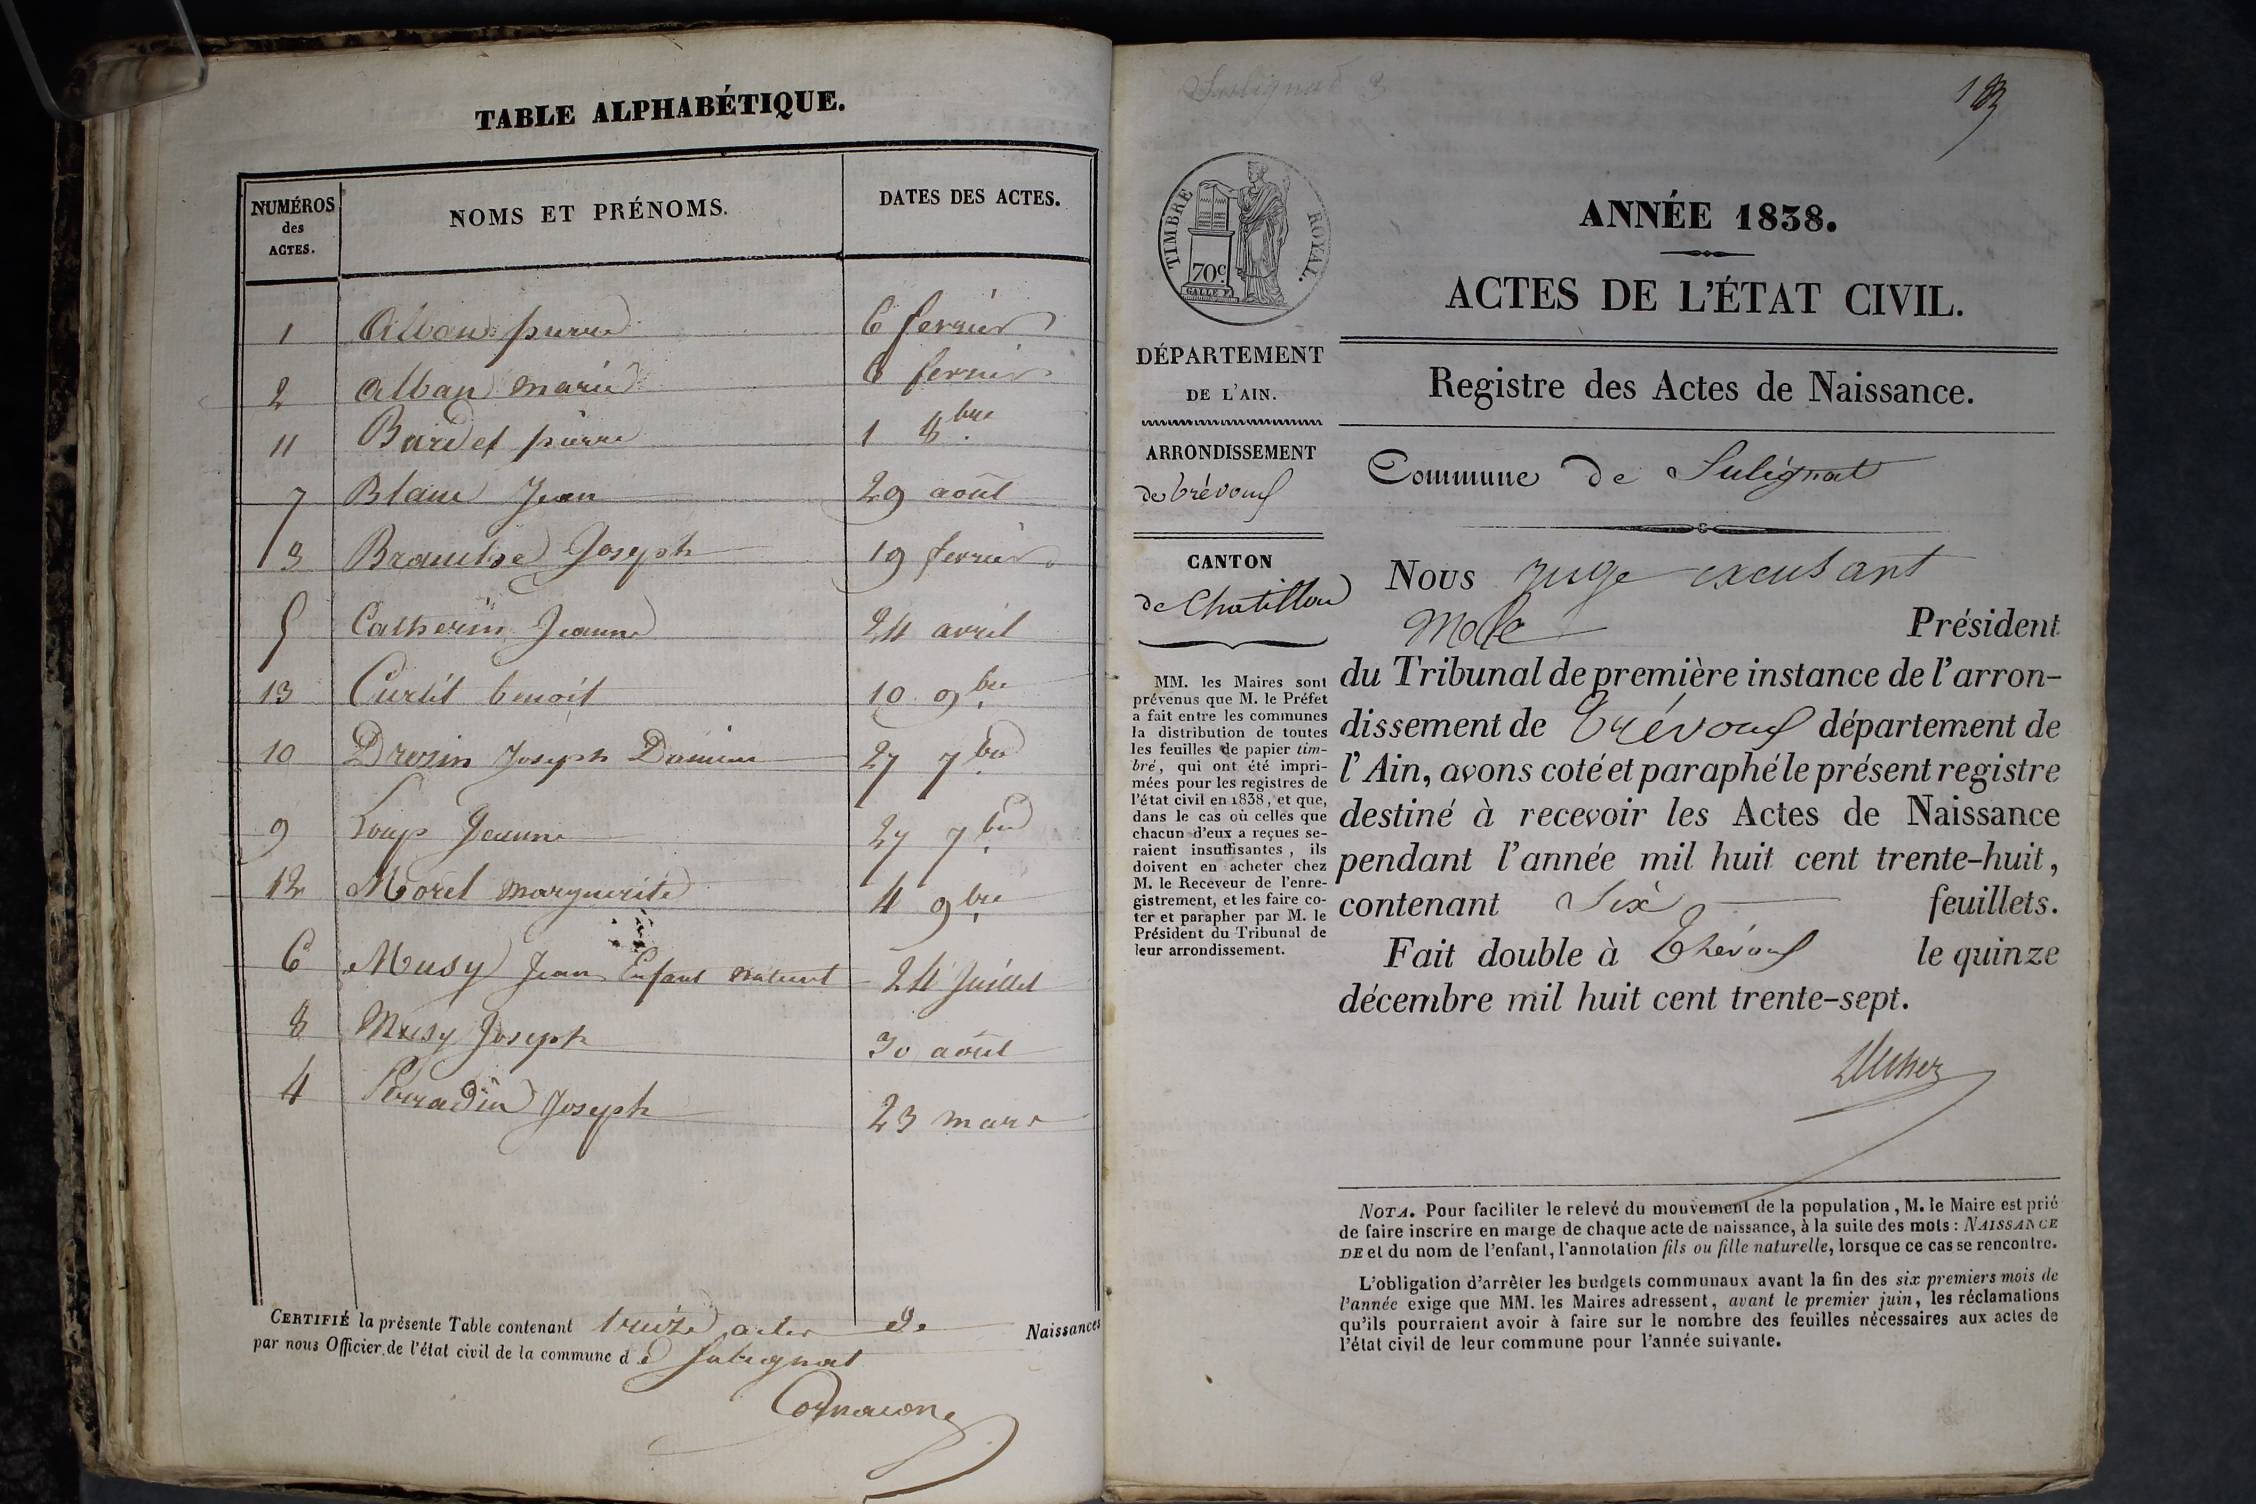 TABLE ALPHABÉTIQUE.
NUMÉROS des ACTES. NOMS ET PRÉNOMS. DATES DES ACTES.
1 Alban pierre 6 fevrier
2 Alban marie 6 fevrier
11 Bardet pierre 1 8bre
7 Blanc Jean 29 août
3 Joseph 19 fevrier
5 Catherin Jeanne 24 avril
13 Curtil benoit 10 9bre
10 Joseph 27 7bre
9 Loup Jeanne 27 7bre
12 Morel marguerite 4 9bre
6 Musy Jean Enfant naturel 24 Juillet
8 Musy Joseph 30 août
4 Perradin Joseph 23 mars
CERTIFIÉ la présente Table contenant treize actes de Naissances
par nous Officier de l'état civil de la commune de Sulignat
183
TIMBRE ROYAL.
70c
GALLE F.
ANNÉE 1838.
ACTES DE L'ÉTAT CIVIL.
DÉPARTEMENT
DE L'AIN.
ARRONDISSEMENT
de trévoux
CANTON
de Chatillon
MM. les Maires sont
prévenus que M. le Préfet
a fait entre les communes
la distribution de toutes
les feuilles de papier tim-
bré, qui ont été impri-
mées pour les registres de
l'état civil en 1838, et que,
dans le cas où celles que
chacun d'eux a reçues se-
raient insuffisantes, ils
doivent en acheter chez
M. le Receveur de l'enre-
gistrement, et les faire co-
ter et parapher par M. le
Président du Tribunal de
leur arrondissement.
Registre des Actes de Naissance.
Commune de Sulignat
Nous juge
Président
du Tribunal de première instance de l'arron-
dissement de Trévoux département de
l'Ain, avons coté et paraphé le présent registre
destiné à recevoir les Actes de Naissance
pendant l'année mil huit cent trente-huit,
contenant Six feuillets.
Fait double à Thévoux le quinze
décembre mil huit cent trente-sept.
NOTA. Pour faciliter le relevé du mouvement de la population, M. le Maire est prié
de faire inscrire en marge de chaque acte de naissance, à la suite des mots : NAISSANCE
DE et du nom de l'enfant, l'annotation fils ou fille naturelle, lorsque ce cas se rencontre.
L'obligation d'arrêter les budgets communaux avant la fin des six premiers mois de
l'année exige que MM. les Maires adressent, avant le premier juin, les réclamations
qu'ils pourraient avoir à faire sur le nombre des feuilles nécessaires aux actes de
l'état civil de leur commune pour l'année suivante.